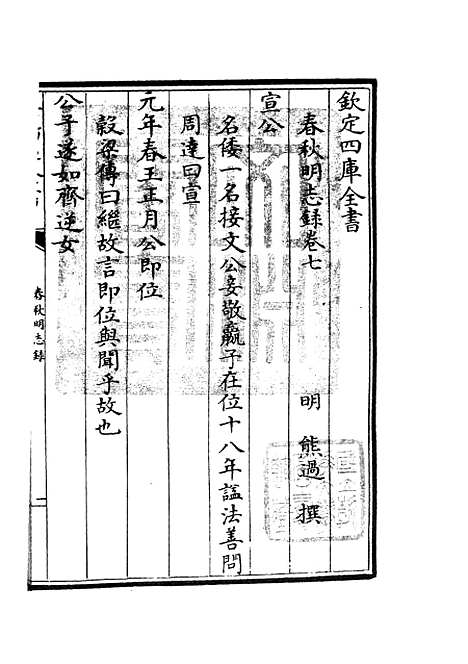 欽定四庫全書
春秋明志録卷七
明 熊過 撰
宣公
名倭一名接文公妾敬嬴子在位十八年諡法善問
周達曰宣
元年春王正月公即位
穀梁傳曰繼故言即位與聞乎故也
公子遂如齊逆女
春秋明志録
一